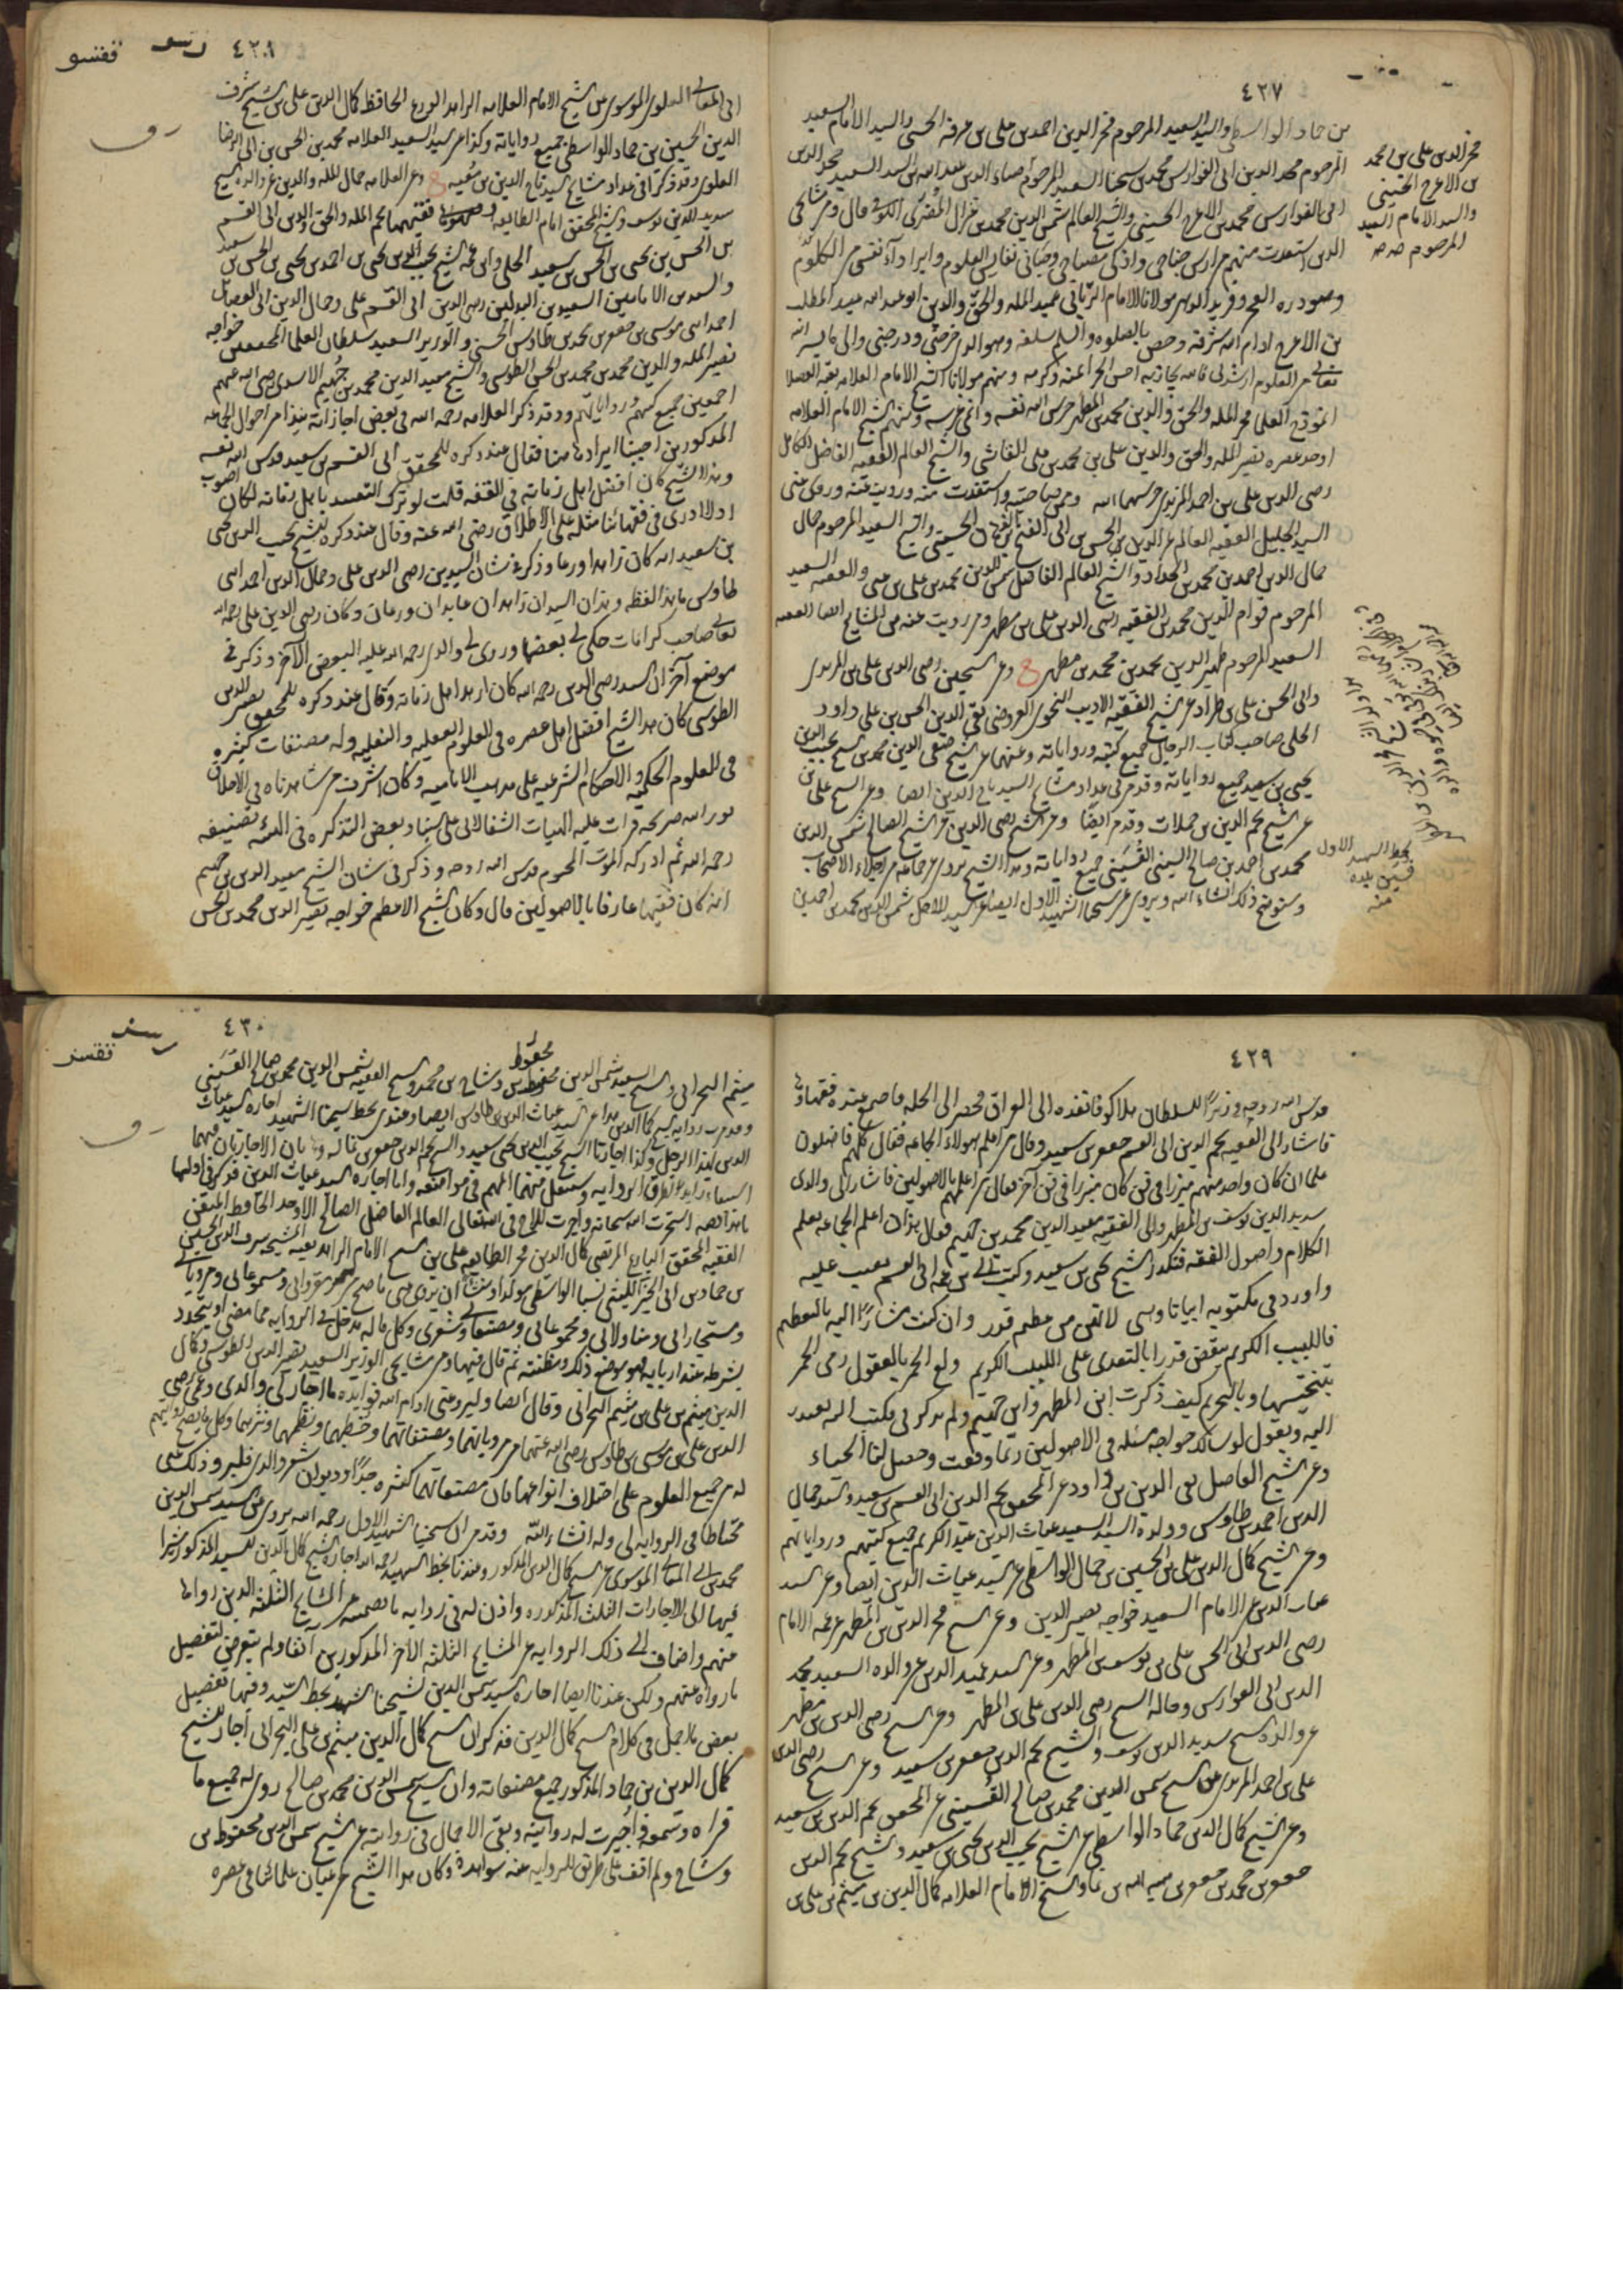 ٤٢٧
بن حماد الواسطي والسيد السعيد المرحوم فخر الدين احمد بن علي بن عرفه الحسني والسيد الامام السعيد
المرحوم مجد الدين ابي الفوارس محمد بن شيخنا السعيد المرحوم ضياء الدين عبد الله بن السيد السعيد مجد الدين
ابي الفوارس محمد بن الاعرج الحسيني والشيخ العالم شمس الدين محمد بن غزال المضري الكوفي قال ومشايخي
الذين استفدت منهم واراش جناحي واذكى مصباحي وحباني نفايس العلوم وابراد آء نفسي من الكلوم
وهو دره الفخر وفريد الدهر مولانا الامام الرباني عميد المله والحق والدين ابو عبد الله عبد المطلب
بن الاعرج ادام الله شرفه وخص بالصلوه والسلم سلفه وهو الذي خرجني ودرجني والى ما يسر الله
تعالى من العلوم ارشدني فالله يجازيه احسن الجزا بمنه وكرمه ومنهم مولانا الشيخ الامام العلامه بقيه الفضلا
انموذج العلما فخر المله والحق والدين محمد بن المطهر حرس الله نفسه وانمى غرسه ومنهم الشيخ الامام العلامه
اوحد عصره نصير المله والحق والدين علي بن محمد بن علي القاشي والشيخ العالم الفقيه الفاضل الكامل
رضي الدين علي بن احمد المزيدي حرسهما الله وممن صاحبته واستفدت منه ورويت عنه وروى عني
السيد الجليل الفقيه العالم عز الدين الحسن بن ابي الفتح بن الدهان الحسيني والشيخ السعيد المرحوم جمال
جمال الدين احمد بن محمد الحداد والشيخ العالم الفاضل شمس الدين محمد بن علي بن غني والفقيه السعيد
المرحوم قوام الدين محمد بن الفقيه رضي الدين علي بن مطهر وممن رويت عنه من المشايخ ايضا الفقيه
السعيد المرحوم ظهير الدين محمد بن محمد بن مطهر ح وعن الشيخين رضي الدين علي بن المزيدي
وابي الحسن علي بن طراد عن الشيخ الفقيه الاديب النحوي العروضي تقي الدين الحسن بن علي بن داود
الحلي صاحب كتاب الرجال جميع كتبه ورواياته وعنهما عن الشيخ صفي الدين محمد بن الشيخ نجيب الدين
يحيى بن سعيد جميع رواياته وقد مر في عداد مشايخ السيد تاج الدين ايضا وعن الشيخ علي بن
عن الشيخ نجم الدين بن حملات وقد مر ايضا وعن الشيخ رضي الدين عن الشيخ الصالح شمس الدين
محمد بن احمد بن صالح السيبي القسيني جميع رواياته وهذا الشيخ يروي عن جماعه من اجلاء الاصحاب
وسنوضح ذلك انشاء الله ويروي عن شيخنا الشهيد الاول ايضا عن السيد الاجل شمس الدين محمد بن احمد بن
فخر الدين علي بن محمد
بن الاعرج الحسيني
والسيد الامام السعيد
المرحوم صح صح
بخط الشهيد الاول
قسين بلده
منه
٤٢٨
ابي المعالي العلوي الموسوي عن الشيخ الامام العلامه الزاهد الورع الحافظ كمال الدين علي بن الشيخ شرف
الدين الحسين بن حماد الواسطي جميع رواياته وكذا عن السيد السعيد العلامه محمد بن الحسن بن ابي الرضا
العلوي وقد ذكر في عداد مشايخ السيد تاج الدين بن معيه ح وعن العلامه جمال المله والدين عن والده الشيخ
سديد الدين يوسف والشيخ المحقق امام الطايفه وفقيهها نجم المله والحق والدين ابي القسم
بن الحسن بن يحيى بن الحسن بن سعيد الحلي وابن عمه الشيخ نجيب الدين يحيى بن احمد بن يحيى بن الحسن بن سعيد
والسيدين الامامين السعيدين البدلين رضي الدين ابي القسم علي وجمال الدين ابي الفضايل
احمد ابني موسى بن جعفر بن محمد بن طاوس الحسني والوزير السعيد سلطان العلما المحققين خواجه
نصير المله والدين محمد بن محمد بن الحسن الطوسي والشيخ مفيد الدين محمد بن جهيم الاسدي رضي الله عنهم
اجمعين جميع كتبهم ورواياتهم وقد ذكر العلامه رحمه الله في بعض اجازاته نبذا من احوال الجماعه
المذكورين احببنا ايرادها هنا فقال عند ذكره للمحقق ابي القسم بن سعيد قدس الله نفسه
وهذا الشيخ كان افضل اهل زمانه في الفقه قلت لو ترك التقييد باهل زمانه لكان اصوب
اذ لا ارى في فقهائنا مثله على الاطلاق رضي الله عنه وقال عند ذكره للشيخ نجيب الدين يحيى
بن سعيد انه كان زاهدا ورعا وذكر في شان السيدين رضي الدين علي وجمال الدين احمد ابني
طاوس ما هذا لفظه وهذان السيدان زاهدان عابدان ورعان وكان رضي الدين علي رحمه الله
تعالى صاحب كرامات حكى لي بعضها وروى لي والدي رحمه الله عليه البعض الآخر وذكر في
موضع آخر ان السيد رضي الدين رحمه الله كان ازهد اهل زمانه وقال عند ذكره للمحقق نصير الدين
الطوسي كان هذا الشيخ افضل اهل عصره في العلوم العقليه والنقليه وله مصنفات كثيره
في العلوم الحكميه والاحكام الشرعيه على مذهب الاماميه وكان اشرف من شاهدناه في الاخلاق
نور الله ضريحه قرات عليه الهيات الشفا لابي علي سينا وبعض التذكره في الهيئه تصنيفه
رحمه الله ثم ادركه الموت المحتوم قدس الله روحه وذكر في شان الشيخ مفيد الدين بن جهيم
انه كان فقيها عارفا بالاصولين قال وكان الشيخ الاعظم خواجه نصير الدين محمد بن الحسن
٤٢٩
قدس الله روحه وزيرا للسلطان هلاكو فانفذه الى العراق فحضر الى الحله فاجتمع عنده فقهاؤها
فاشار الى الفقيه نجم الدين ابي القسم جعفر بن سعيد وقال من اعلم هؤلاء الجماعه فقال كلهم فاضلون
علما ان كان واحد منهم مبرزا في فن كان مبرزا في فن آخر فقال من اعلمهم بالاصولين فاشار الى والدي
سديد الدين يوسف بن المطهر والى الفقيه مفيد الدين محمد بن جهيم فقال هذان اعلم الجماعه بعلم
الكلام واصول الفقه فتكدر الشيخ يحيى بن سعيد وكتب الى ابن عمه ابي القسم يعتب عليه
واورد في مكتوبه ابياتا وهي لا تهن من عظيم قدر وان كنت مشارا اليه بالتعظيم
فاللبيب الكريم ينقص قدرا بالتعدي على اللبيب الكريم ولع الخمر بالعقول رمى الخمر
بتنجيسها وبالتحريم كيف ذكرت ابن المطهر وابن جهيم ولم تذكرني فكتب اليه يعتذر
اليه ويقول لو سالك خواجه مسئله في الاصولين ربما وقفت وحصل لنا الحياء
وعن الشيخ الفاضل تقي الدين بن داود عن المحقق نجم الدين ابي القسم بن سعيد والسيد جمال
الدين احمد بن طاوس وولده السيد السعيد غياث الدين عبد الكريم جميع كتبهم ورواياتهم
وعن الشيخ كمال الدين علي بن الحسين بن حماد الواسطي عن السيد غياث الدين ايضا وعن السيد
غياث الدين عن الامام السعيد خواجه نصير الدين وعن الشيخ فخر الدين بن المطهر عن عمه الامام
رضي الدين ابي الحسن علي بن يوسف بن المطهر وعن السيد عميد الدين عن والده السعيد مجد
الدين ابي الفوارس وخاله الشيخ رضي الدين علي بن المطهر وعن الشيخ رضي الدين بن مطهر
عن والده الشيخ سديد الدين يوسف والشيخ نجم الدين جعفر بن سعيد وعن الشيخ رضي الدين
علي بن احمد المزيدي عن الشيخ شمس الدين محمد بن صالح القسيني عن المحقق نجم الدين بن سعيد
وعن الشيخ كمال الدين حماد الواسطي عن الشيخ نجيب الدين يحيى بن سعيد والشيخ نجم الدين
جعفر بن محمد بن جعفر بن هبه الله بن نما والشيخ الامام العلامه كمال الدين بن ميثم بن علي بن
٤٣٠
ميثم البحراني والشيخ السعيد شمس الدين محفوظ بن وشاح بن محمد والشيخ الفقيه شمس الدين محمد بن صالح القسيني
وقد مرت روايه الشيخ كمال الدين هذا عن السيد غياث الدين بن طاوس ايضا وعندي بخط شيخنا الشهيد اجازه السيد غياث
الدين لهذا الرجل وكذا اجازتا الشيخ نجيب الدين يحيى بن سعيد والشيخ نجم الدين جعفر بن نما له
استخرت الله سبحانه واجزت للاخ في الله تعالى العالم الفاضل الصالح الاوحد الحافظ المتقن
الفقيه المحقق البارع المرتضى كمال الدين فخر الطايفه علي بن الشيخ الامام الزاهد بقيه المشيخه شرف الدين الحسين
بن حماد بن ابي الخير الليثي نسبا الواسطي مولدا
بشرطه عند اربابه فهو موضع ذلك ومظنته ثم قال فيها ومن مشايخي الوزير السعيد نصير الدين الطوسي وكمال
الدين ميثم بن علي بن ميثم البحراني وقال ايضا وليرو عني ادام الله فوايده ما اجاز لي والدي وعمي رضي
الدين علي بن موسى بن طاوس رضي الله عنهما من مروياتهما ومصنفاتهما وخطبهما ونظمهما ونثرهما
من جميع العلوم على اختلاف انواعها فان مصنفاتهما كثيره جدا وديوان شعر والدي فليرو ذلك عني
محتاطا في الروايه لي وله انشاء الله وقد مر ان شيخنا الشهيد الاول رحمه الله يروي عن السيد شمس الدين
محمد بن ابي المعالي الموسوي عن الشيخ كمال الدين المذكور وعندنا بخط الشهيد رحمه الله اجازه الشيخ كمال الدين للسيد المذكور مشيرا
فيها الى الاجازات الثلث المذكوره واذن له في روايه ما تضمنته عن المشايخ الثلثه الذين رواها
عنهم واضاف الى ذلك الروايه عن المشايخ الثلثه الاخر المذكورين آنفا ولم يتعرض لتفصيل
ما رواه عنهم ولكن عندنا ايضا اجازه السيد شمس الدين لشيخنا الشهيد بخط السيد وفيها تفصيل
بعض ما اجمل في كلام الشيخ كمال الدين فذكر ان الشيخ كمال الدين ميثم بن علي البحراني اجاز للشيخ
كمال الدين بن حماد المذكور جميع مصنفاته وان الشيخ شمس الدين محمد بن صالح روى له جميع ما
قراه وسمعه واجيزت له روايته وبقي الاجمال في روايته عن الشيخ شمس الدين محفوظ بن
وشاح ولم اقف على طريق للروايه عنه سوى هذه وكان هذا الشيخ من اعيان علمائنا في عصره